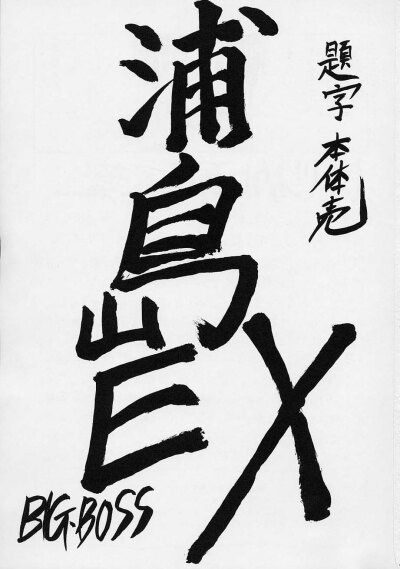 題字 本体売
浦島EX
BIG・BOSS